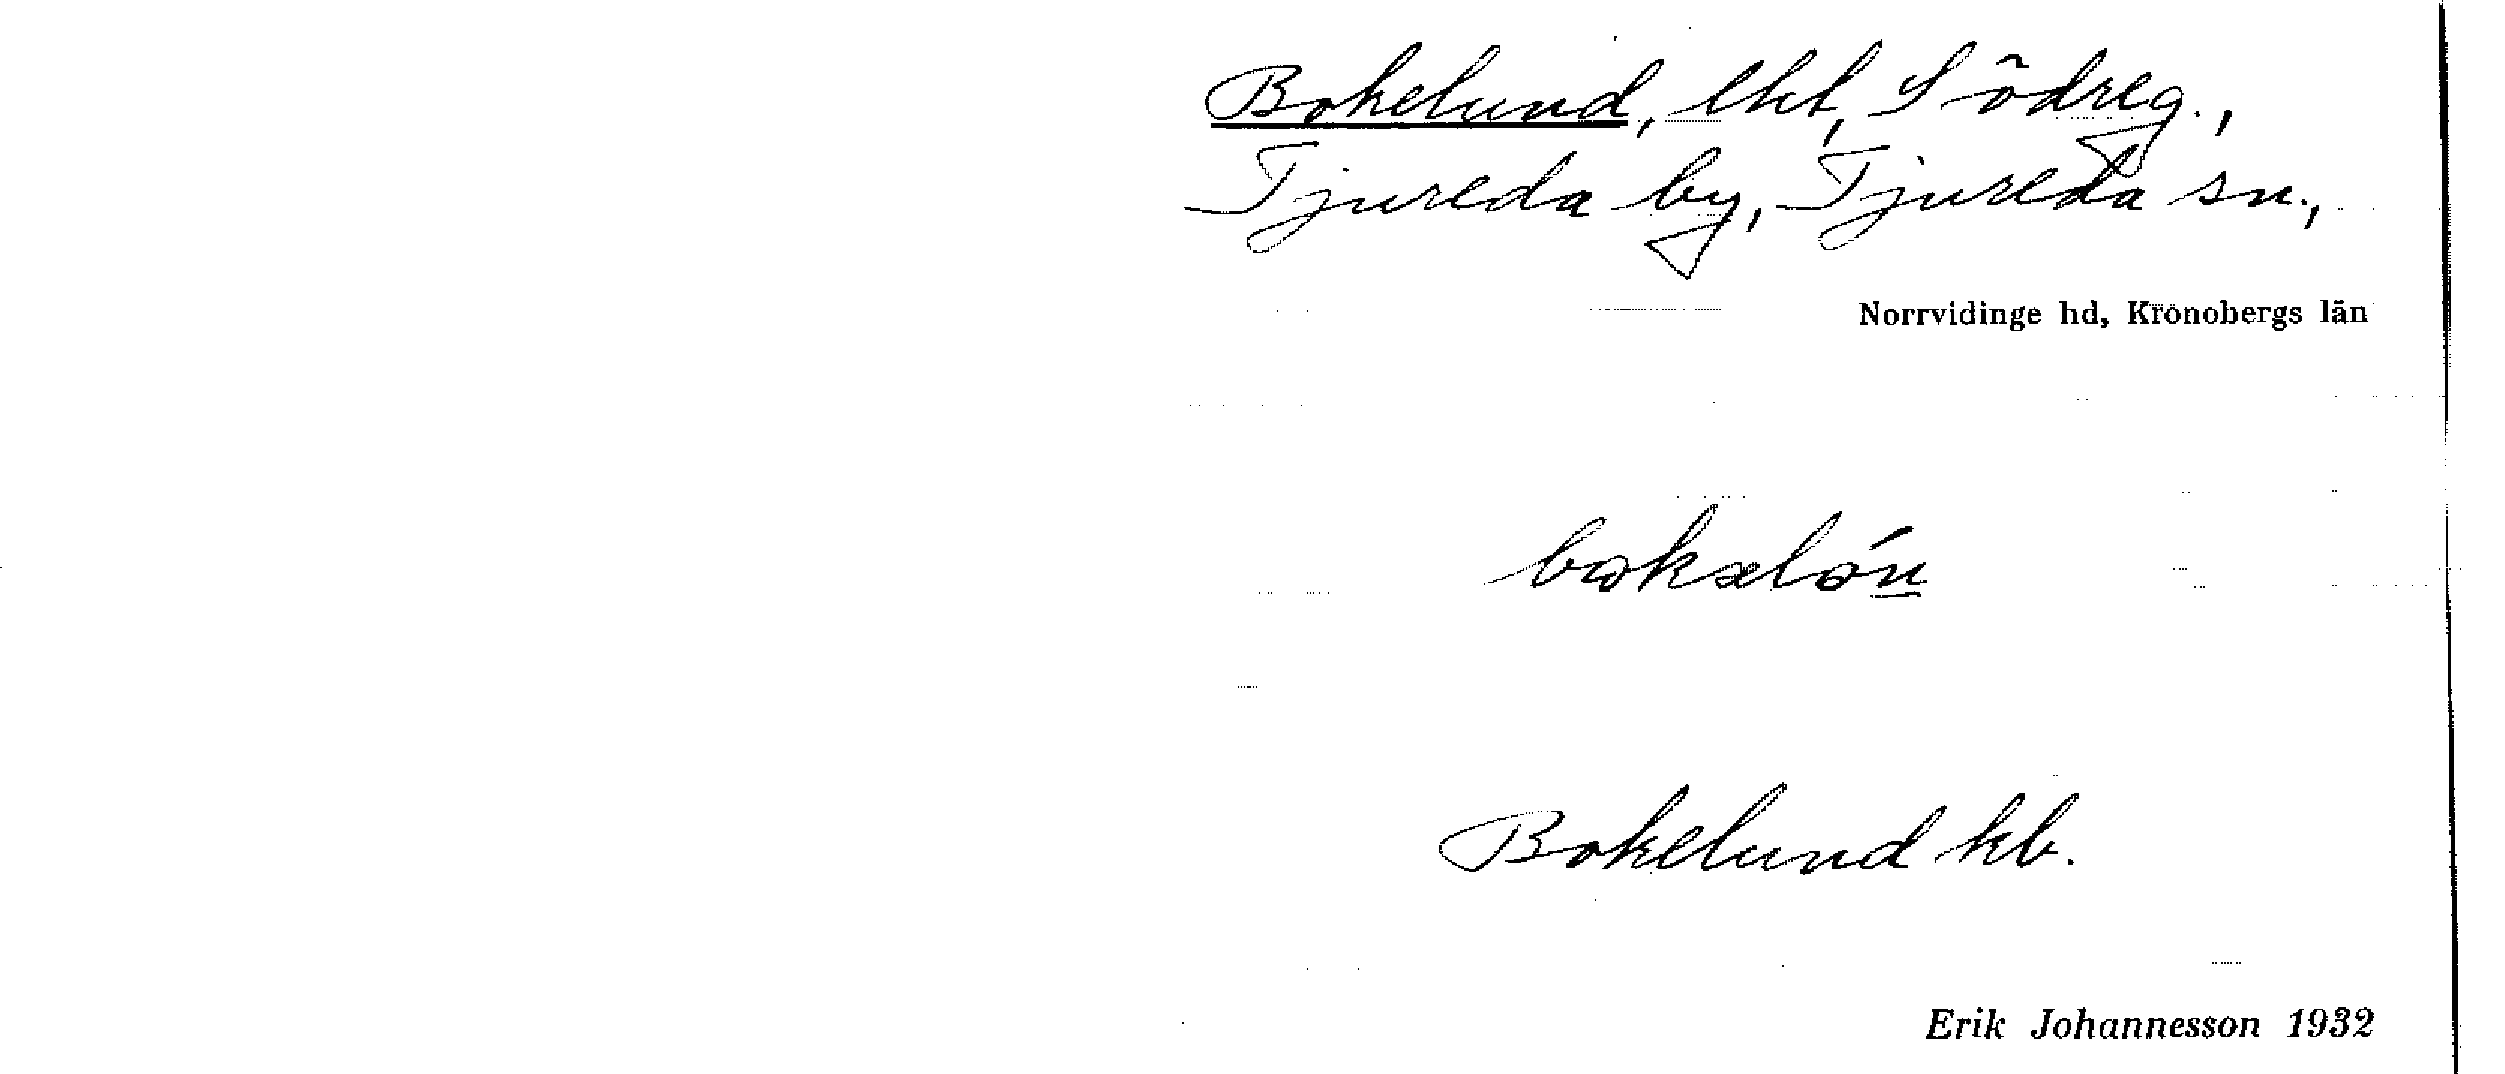 Bokelund, lht, Södreg.,
Tjureda by, Tjureda sn.,
Norrvidinge hd, Kronobergs län
Bokelund kb.
Erik Johannesson 1932